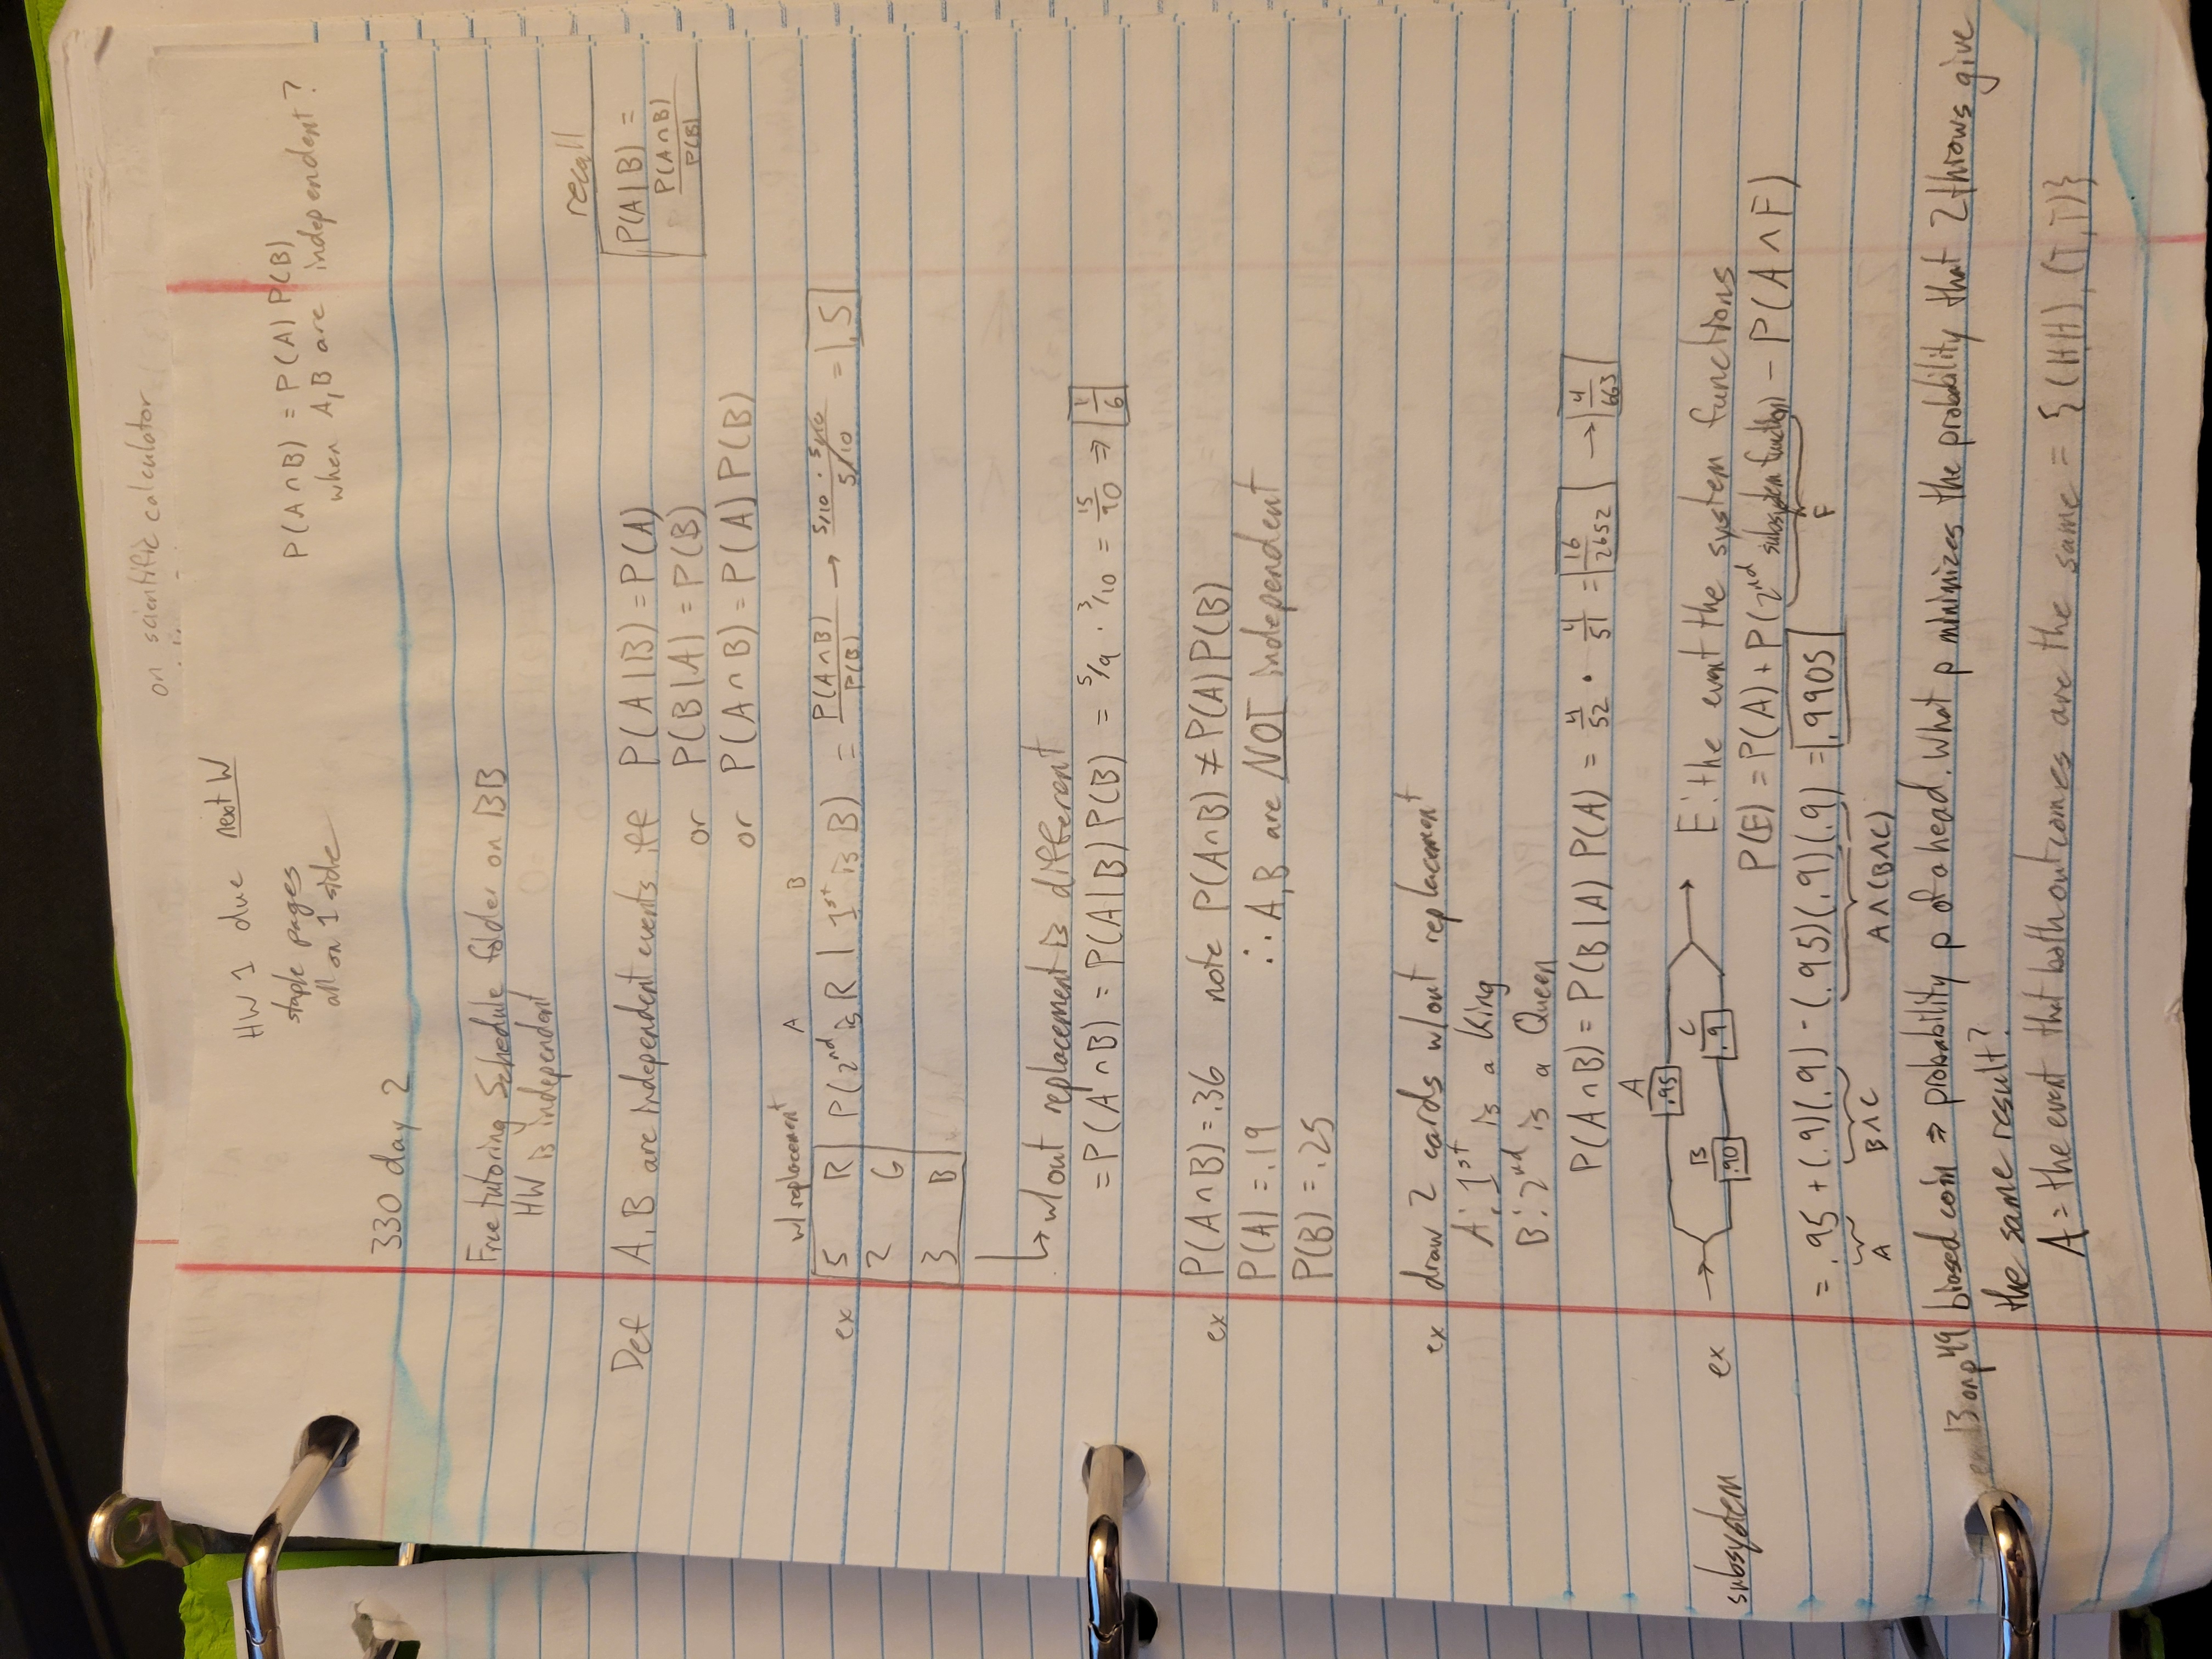 on scientific calculator
HW 1 due next W
staple pages
all on 1 side
P(A∩B) = P(A) P(B)
when A,B are independent?
330 day 2
Free tutoring Schedule folder on BB
HW is independent
recall
P(A|B) =
P(A∩B)
P(B)
Def A, B are independent events iff P(A|B) = P(A)
or P(B|A) = P(B)
or P(A∩B) = P(A) P(B)
w/ replacement A B
ex 5 R P(2nd is R | 1st is B) = P(A∩B)/P(B) → 5/10 · 5/10 / 5/10 = .5
2 G
3 B
↳ w/out replacement is different
= P(A∩B) = P(A|B) P(B) = 5/9 · 3/10 = 15/90 ⇒ 1/6
ex P(A∩B) = .36 note P(A∩B) ≠ P(A) P(B)
P(A) = .19 ∴ A,B are NOT independent
P(B) = .25
ex draw 2 cards w/out replacement
A: 1st is a King
B: 2nd is a Queen
P(A∩B) = P(B|A) P(A) = 4/52 · 4/51 = 16/2652 → 4/663
A
.95
B C
.90 .9
subsystem ex E: the event the system functions
P(E) = P(A) + P(2nd subsystem function) − P(A∧F)
F
= .95 + (.9)(.9) - (.95)(.9)(.9) = .9905
A B∧C A∧(B∧C)
ex 13 on p49 biased coin ⇒ probability p of a head. What p minimizes the probability that 2 throws give
the same result?
A = the event that both outcomes are the same = {(H,H), (T,T)}